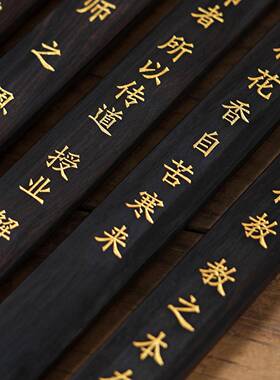 师之恩
师者所以传道授业解
花香自苦寒来
教教之本